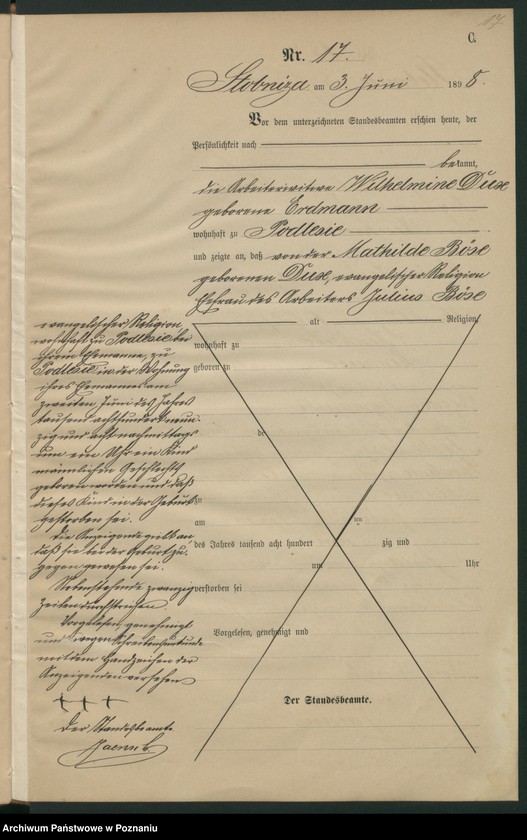 17
C.
Nr. 17.
Stobnica am 3. Juni 1898.
Vor dem unterzeichneten Standesbeamten erschien heute, der
Persönlichkeit nach
bekannt,
die Arbeiterwitwe Wilhelmine Duse
geborene Erdmann
wohnhaft zu Podlesie
und zeigte an, daß von der Mathilde Böse
geborenen Duse, evangelischer Religion
Ehefrau des Arbeiters Julius Böse
alt Religion,
wohnhaft zu
geboren zu
zu
am
des Jahres tausend acht hundert zig und
um Uhr
verstorben sei
Vorgelesen, genehmigt und
Der Standesbeamte.
evangelischer Religion,
wohnhaft zu Podlesie bei
ihrem Ehemanne, zu
Podlesie in der Wohnung
ihres Ehemannes am
zweiten Juni des Jahres
tausend achthundert neun-
zig und acht nachmittags
um ein Uhr ein Kind
männlichen Geschlechts
geboren worden und daß
dieses Kind in der Geburt
gestorben sei.
Die Anzeigende gibt an
daß sie bei der Geburt zu-
gegen gewesen sei.
Nebenstehende zwanzig
Zeilen durchstrichen.
Vorgelesen, genehmigt
und wegen Schreibensunkunde
mit dem Handzeichen der
Anzeigenden versehen
+++
Der Standesbeamte
Archiwum Państwowe w Poznaniu